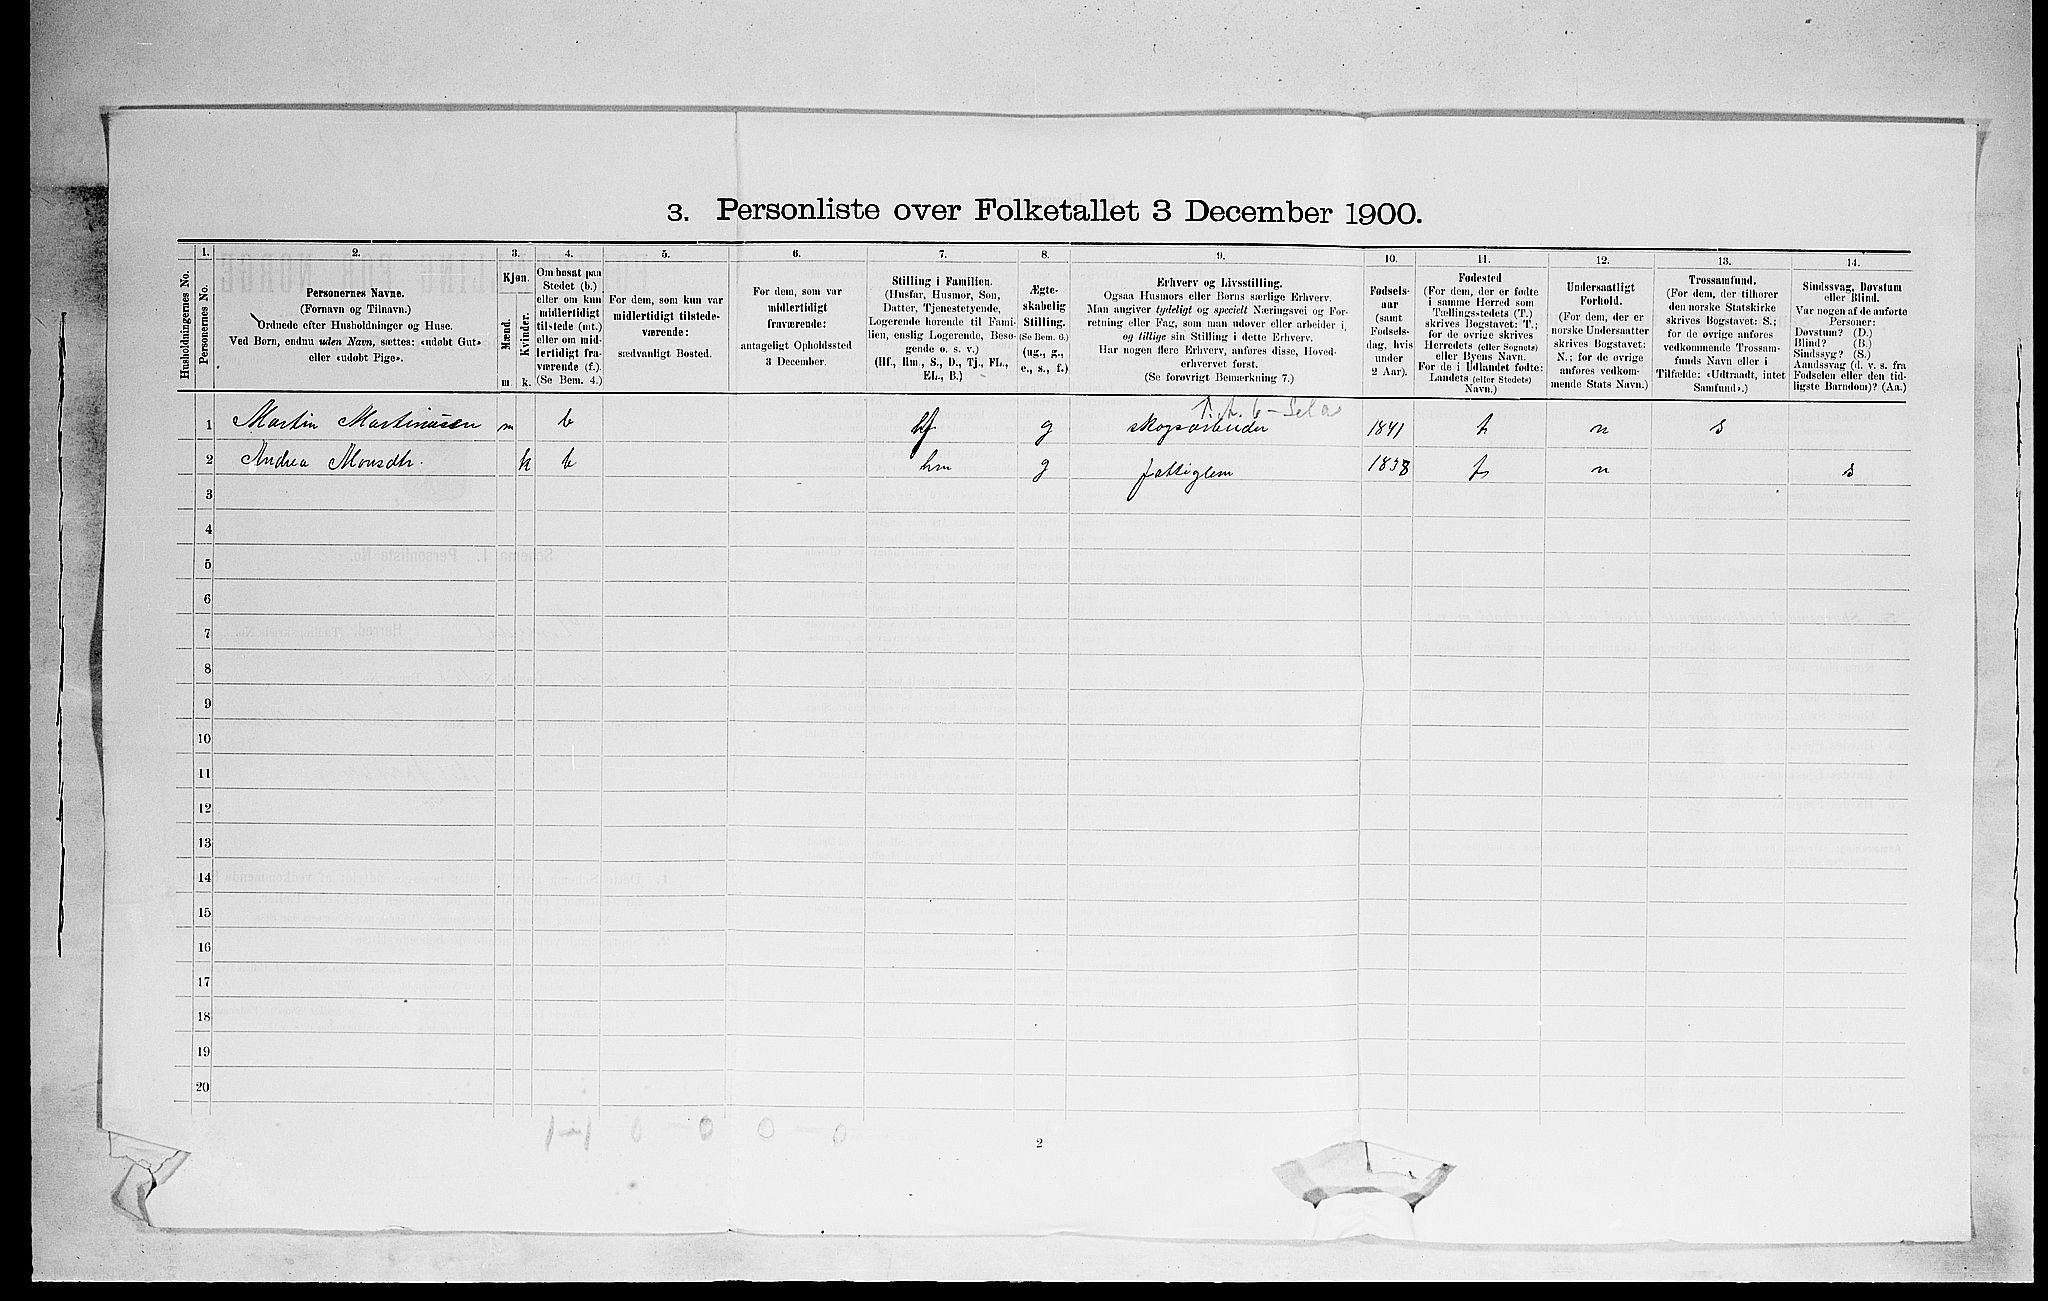 3. Personliste over Folketallet 3 December 1900.
Husholdningernes No.
1.
Personernes No.
2.
Personernes Navne.
(Fornavn og Tilnavn.)
Ordnede efter Husholdninger og Huse.
Ved Børn, endnu uden Navn, sættes: «udøbt Gut»
eller «udøbt Pige».
3.
Kjøn.
Mænd.
Kvinder.
m.
k.
4.
Om bosat paa
Stedet (b.)
eller om kun
midlertidigt
tilstede (mt.)
eller om mid-
lertidigt fra-
værende (f.)
(Se Bem. 4.)
5.
For dem, som kun var
midlertidigt tilstede-
værende:
sædvanligt Bosted.
6.
For dem, som var
midlertidigt
fraværende:
antageligt Opholdssted
3 December.
7.
Stilling i Familien.
(Husfar, Husmor, Søn,
Datter, Tjenestetyende,
Logerende hørende til Fami-
lien, enslig Logerende, Besø-
gende o. s. v.)
(Hf., Hm., S., D., Tj., FL.,
EL., B.)
8.
Ægte-
skabelig
Stilling.
(Se Bem. 6.)
(ug., g.,
e., s., f.)
9.
Erhverv og Livsstilling.
Ogsaa Husmors eller Børns særlige Erhverv.
Man angiver tydeligt og specielt Næringsvei og For-
retning eller Fag, som man udøver eller arbeider i,
og tillige sin Stilling i dette Erhverv.
Har nogen flere Erhverv, anføres disse, Hoved-
erhvervet først.
(Se forøvrigt Bemerkning 7.)
10.
Fødsels-
aar
(samt
Fødsels-
dag, hvis
under
2 Aar).
11.
Fødested
(For dem, der er fødte
i samme Herred som
Tællingsstedets (T.)
skrives Bogstavet: T.;
for de øvrige skrives
Herredets (eller Sognets)
eller Byens Navn.
For de i Udlandet fødte:
Landets (eller Stedets)
Navn.)
12.
Undersaatligt
Forhold.
(For dem, der er
norske Undersaatter
skrives Bogstavet:
N.; for de øvrige
anføres vedkom-
mende Stats Navn.)
13.
Trossamfund.
(For dem, der tilhører
den norske Statskirke
skrives Bogstavet: S.;
for de øvrige anføres
vedkommende Trossam-
funds Navn eller i
Tilfælde: «Udtraadt, intet
Samfund».)
14.
Sindssvag, Døvstum
eller Blind.
Var nogen af de anførte
Personer:
Døvstum? (D.)
Blind? (B.)
Sindssyg? (S.)
Aandssvag (d. v. s. fra
Fødselen eller den tid-
ligste Barndom)? (Aa.)
1 Martin Martinussen m b hf g skogsarbeider 1841 t n s
2 Andrea Monsdtr. k b hm g fattiglem 1838 t n s
3
4
5
6
7
8
9
10
11
12
13
14
15
16
17
18
19
20
2